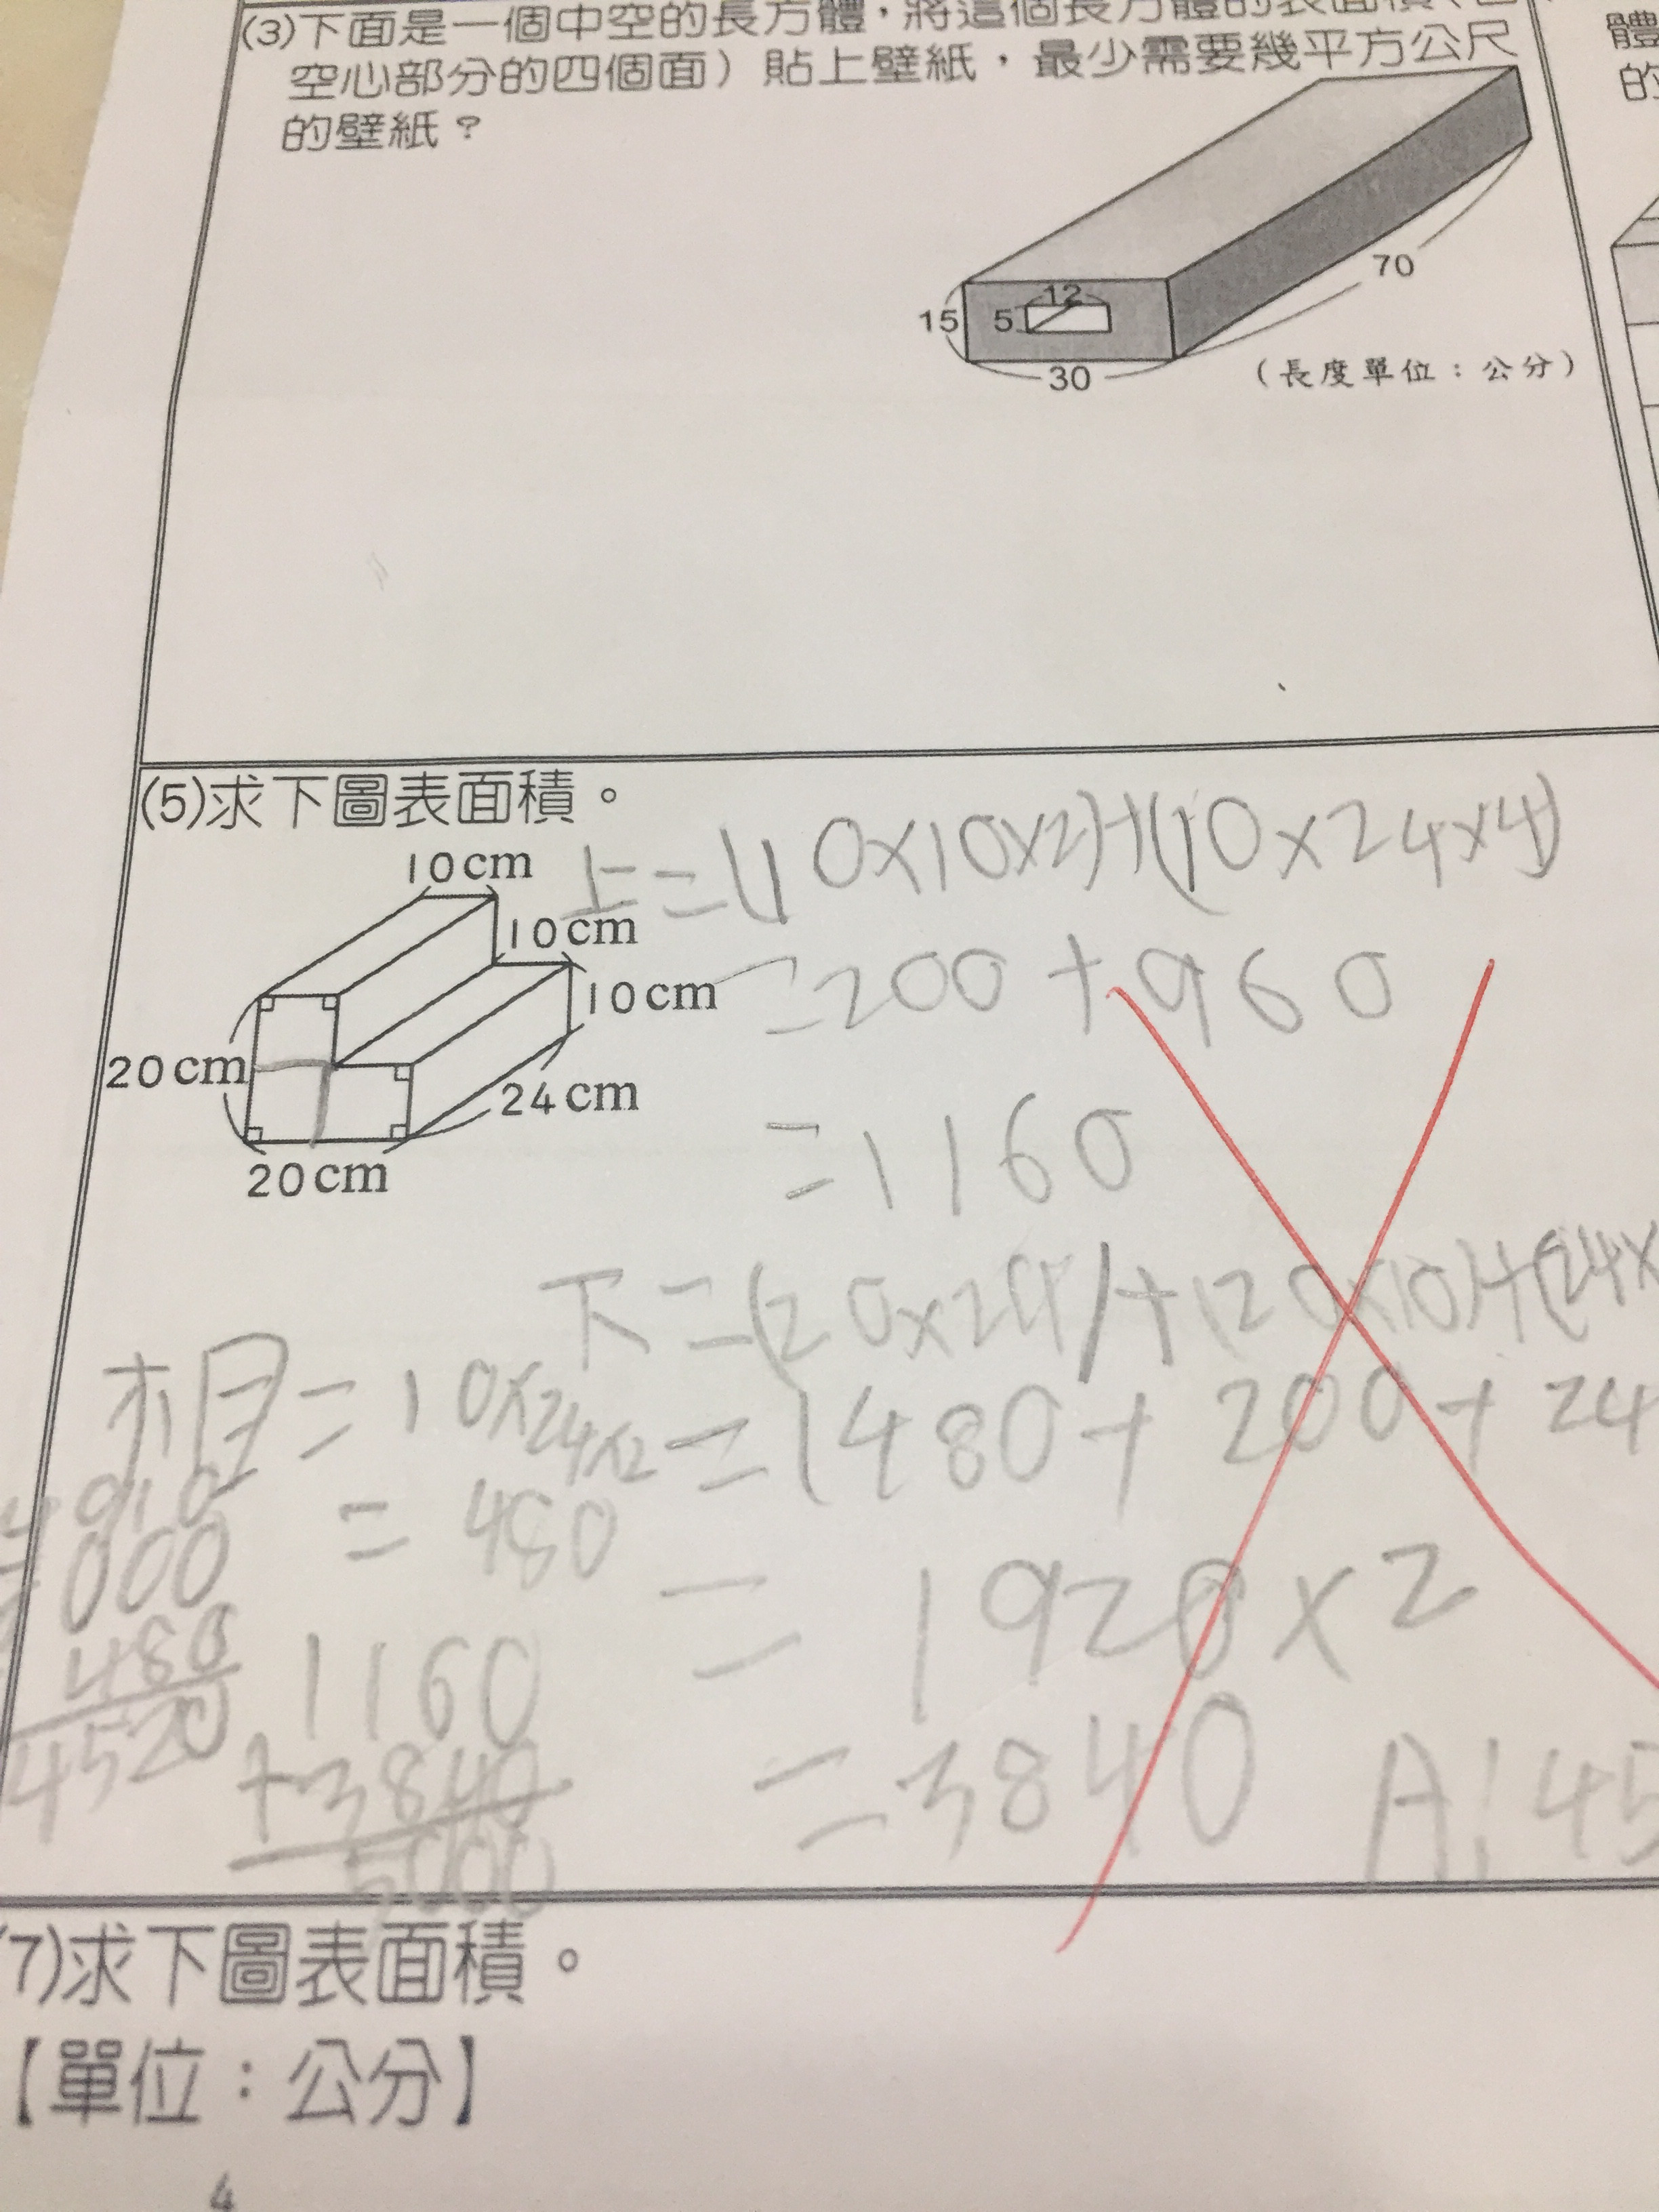 (3)下面是一個中空的長方體，將這個長方體的表面積
體
空心部分的四個面）貼上壁紙，最少需要幾平方公尺
的
的壁紙？
12
15
5
30
70
（長度單位：公分）
(5)求下圖表面積。
10cm
10cm
10cm
20cm
24cm
20cm
上=(10×10×2)+(10×24×4)
=200+960
=1160
下=(20×24)+(20×10)+(24×
=(480+200+24
=1920×2
=3840
相=10×24×2
=480
000
480
4520
1160
+3840
5000
A:45
(7)求下圖表面積。
【單位：公分】
4